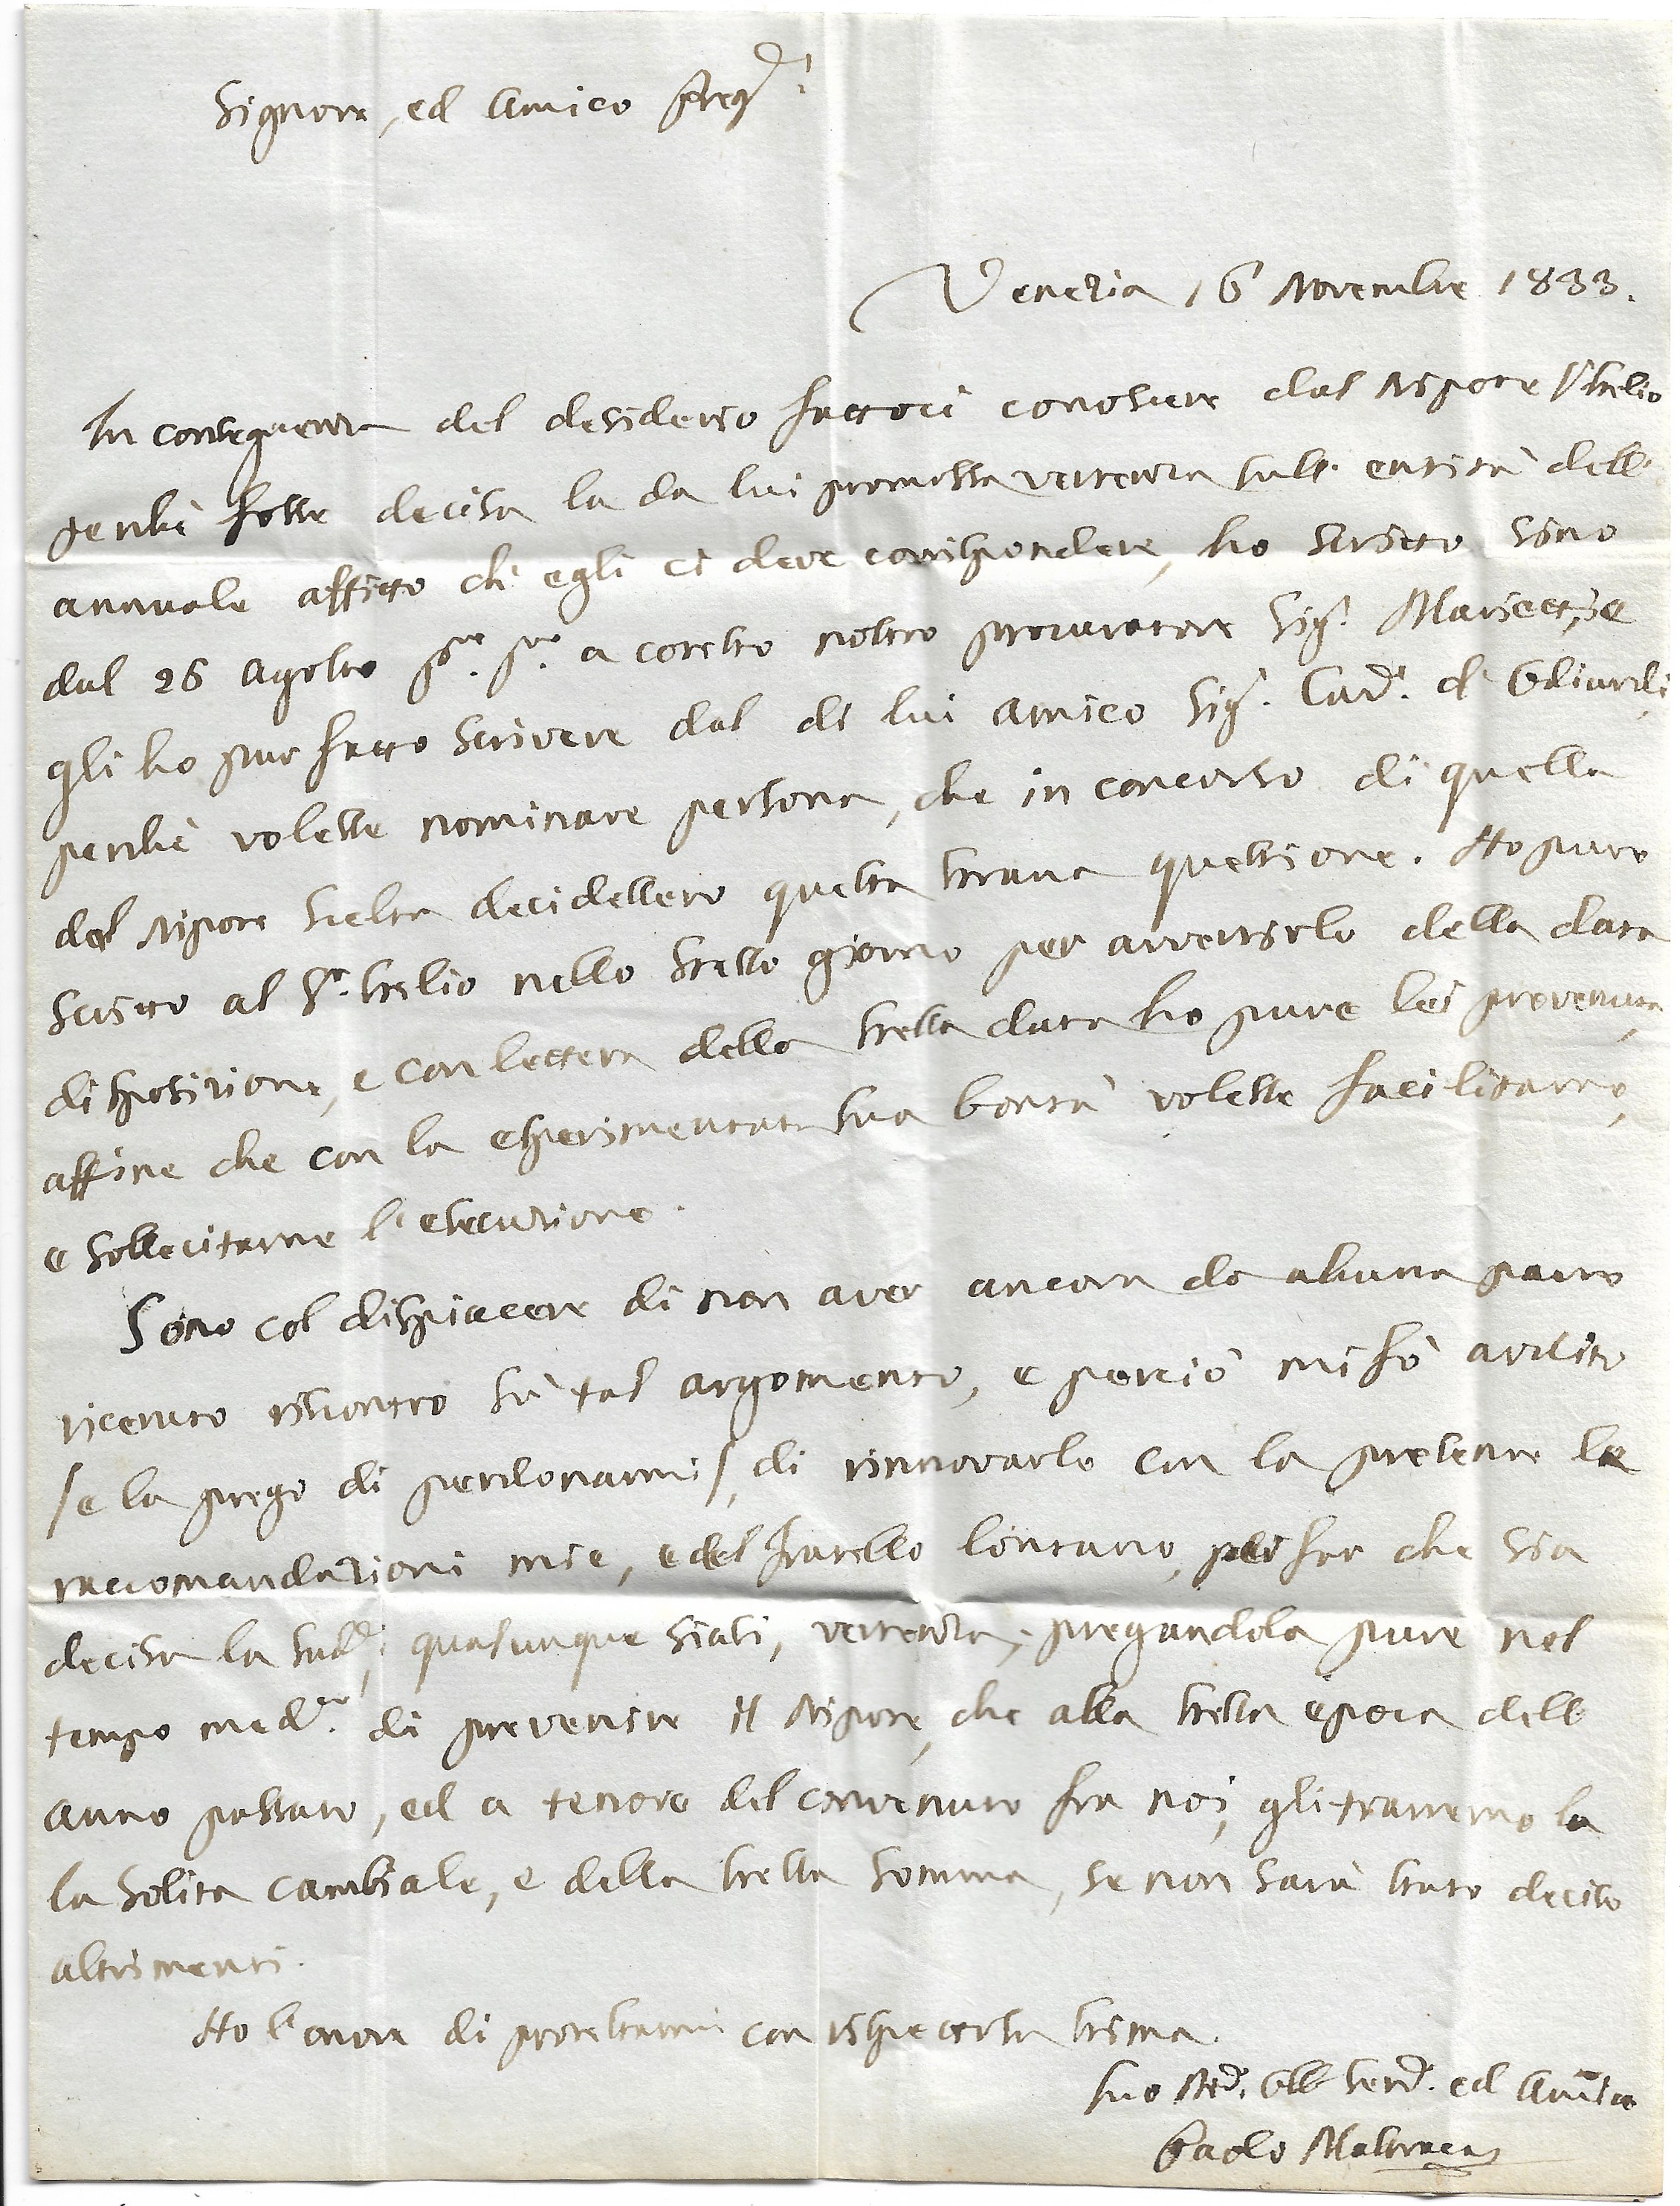 Signore, ed Amico Preg.
Venezia 16 Novembre 1833.
In conseguenza del desiderio fattoci conoscere dal Nipote
perchè fosse decisa la da lui promossa vertenza sull' entità dell'
annuale affitto ch' egli ci deve corrispondere, ho scritto sino
dal 26 Agosto a cotesto nostro procuratore Sig.
gli ho pur fatto scrivere dal di lui amico Sig.
perchè volesse nominare persona, che in concorso di quella
dal Nipote scelta decidessero questa strana questione. Ho pure
scritto al nello stesso giorno per avvertirlo della data
disposizione, e con lettera della stessa data ho pure lei prevenuta,
affine che con la esperimentata sua bontà volesse facilitarne,
e sollecitarne l' esecuzione.
Sono col dispiacere di non aver ancora da alcuna parte
ricevuto riscontro sù tal argomento, e perciò mi fò ardito
/e la prego di perdonarmi/, di rinnovarle con la presente le
raccomandazioni mie, e del fratello lontano, far che sia
decisa la sud. qualunque siasi, vertenza; pregandola pure nel
tempo med. di prevenire il Nipote, che alla stessa epoca dell'
anno passato, ed a tenore del convenuto fra noi, gli trarremo la
la solita cambiale, e della stessa somma, se non sarà stato deciso
altrimenti.
Ho l' onore di protestarmi con rispettosa stima.
Suo Obb. Serv. ed Amico
Paolo